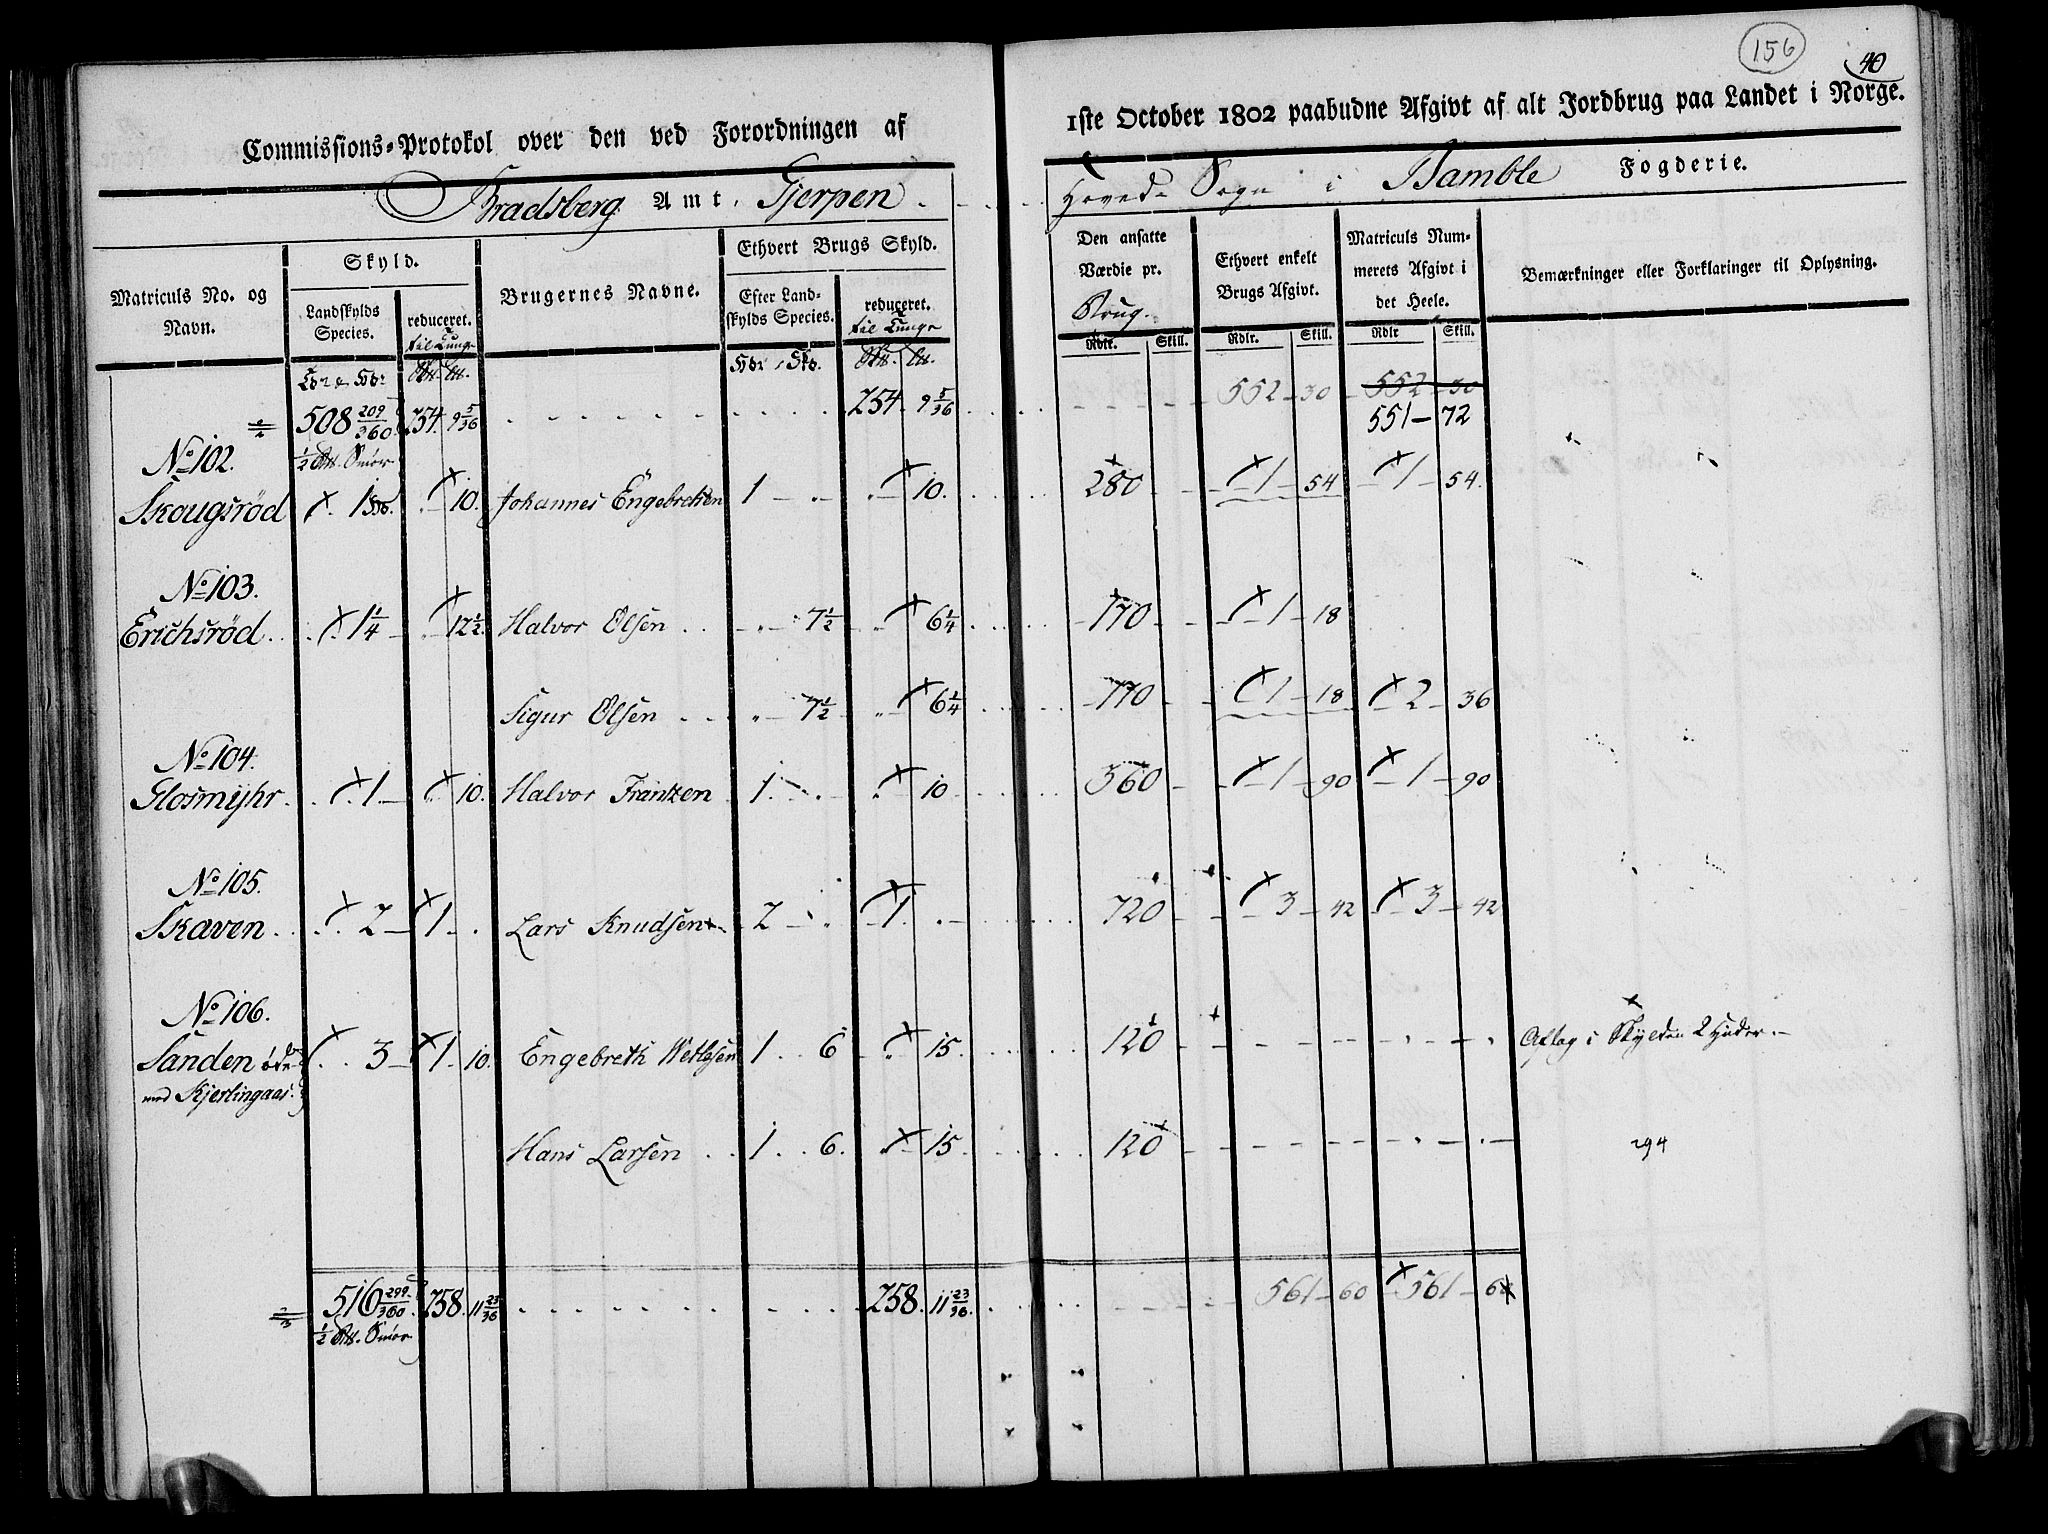 156
40
Commissions-Protokol over den ved Forordningen af
1ste October 1802 paabudne Afgivt af alt Jordbrug paa Landet i Norge.
Bradsberg Amt, Gjerpen
Hoved Sogn i Bamble Fogderie.
Matriculs No. og Navn.
Skyld.
Landskylds Species.
reduceret.
til Tunge
Brugernes Navne.
Ethvert Brugs Skyld.
Efter Landskylds Species.
reduceret.
til Tunge
Den ansatte Værdie pr. Brug.
Rdlr. Skill.
Ethvert enkelt Brugs Afgivt.
Rdlr. Skill.
Matriculs Nummerets Afgivt i det Heele.
Rdlr Skill.
Bemærkninger eller Forklaringer til Oplysning.
508 209/360 254. 9 5/36 254. 9 5/36 552 - 30 552 - 30
½ Smör 551 - 72
No 102.
Skougsröd 1 10. Johannes Engebretsen 1 10. 280 1 - 54 1 - 54.
No 103.
Erichsröd 1¼ 12½ Halvor Olsen 7½ 6¼ 170 1 - 18
Sigur Olsen 7½ 6¼ 170 1 - 18 2 - 36
No 104.
Glosmyhr 1 10. Halvor Frantzen 1 10 360 1 - 90 1 - 90
No 105.
Skaven 2 1 Lars Knudsen 2 1. 720 3 - 42 3 - 42
No 106.
Sanden öde 3 1 10. Engebreth Wetlesen 1 6 15. 120 Aflag i Skylden 2 Huder.
med Kjerlingaas.
Hans Larsen 1 6. 15. 120 294
516 299/360 258. 11 23/36 258. 11 23/36. 561 - 60 561 - 6
½ Smör